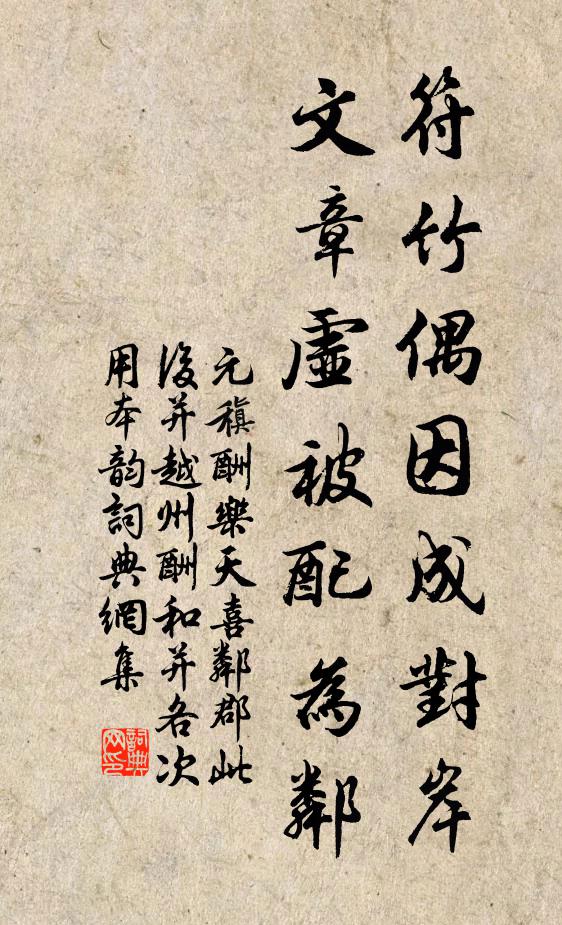 符竹偶因成對岸
文章虛被配為鄰
元稹酬樂天喜鄰郡此
後并越州酬和并各次
用本韵詞典網集
詞典網印